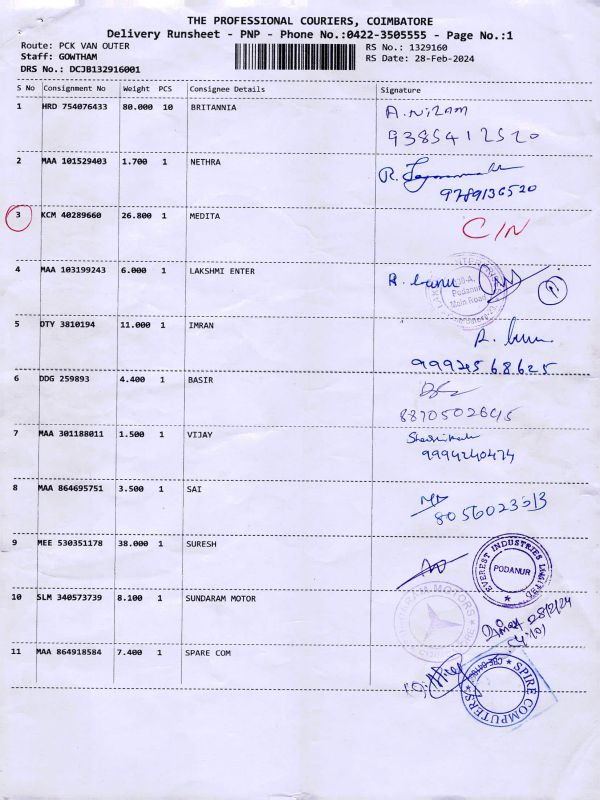 THE PROFESSIONAL COURIERS, COIMBATORE
Delivery Runsheet - PNP - Phone No.:0422-3505555 - Page No.:1
Route: PCK VAN OUTER RS No.: 1329160
Staff: GOWTHAM RS Date: 28-Feb-2024
DRS No.: DCJB132916001
S No Consignment No Weight PCS Consignee Details Signature
1 HRD 754076433 80.000 10 BRITANNIA
A. Nizam
9385412520
2 MAA 101529403 1.700 1 NETHRA
R.
9789136520
3 KCM 40289660 26.800 1 MEDITA
C/N
4 MAA 103199243 6.000 1 LAKSHMI ENTER
R. banu
Podanur
Main Road
5 DTY 3810194 11.000 1 IMRAN
R. banu
6 DDG 259893 4.400 1 BASIR
8870502645
7 MAA 301188011 1.500 1 VIJAY
9994240474
8 MAA 864695751 3.500 1 SAI
8056023513
9 MEE 530351178 38.000 1 SURESH
EVEREST INDUSTRIES LIMITED
PODANUR
10 SLM 340573739 8.100 1 SUNDARAM MOTOR
MOTORS
28/2/24
11 MAA 864918584 7.400 1 SPARE COM
SPIRE COMPUTERS